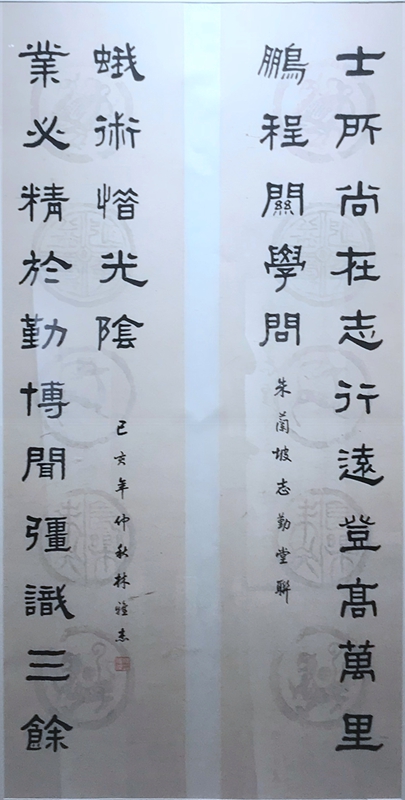 士所尚在志行遠登高萬里
鵬程關學問
朱蘭坡志勤堂聯
業必精於勤博聞彊識三餘
蛾術惜光陰
己亥年仲秋林愷杰